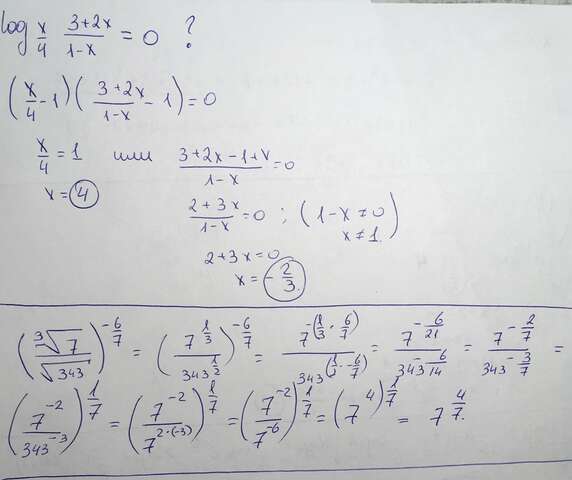 log_{x/4} (3+2x)/(1-x) = 0 ?
(x/4 - 1)((3+2x)/(1-x) - 1) = 0
x/4 = 1 или (3+2x-1+x)/(1-x) = 0
x = 4
(2+3x)/(1-x) = 0 ; (1-x ≠ 0
x ≠ 1)
2+3x = 0
x = -2/3.
(∛7/√343)^{-6/7} = (7^{1/3}/343^{1/2})^{-6/7} = 7^{-(1/3 · 6/7)}/343^{(1/2 · -6/7)} = 7^{-6/21}/343^{-6/14} = 7^{-2/7}/343^{-3/7} =
(7^{-2}/343^{-3})^{1/7} = (7^{-2}/7^{2·(-3)})^{1/7} = (7^{-2}/7^{-6})^{1/7} = (7^4)^{1/7} = 7^{4/7}.